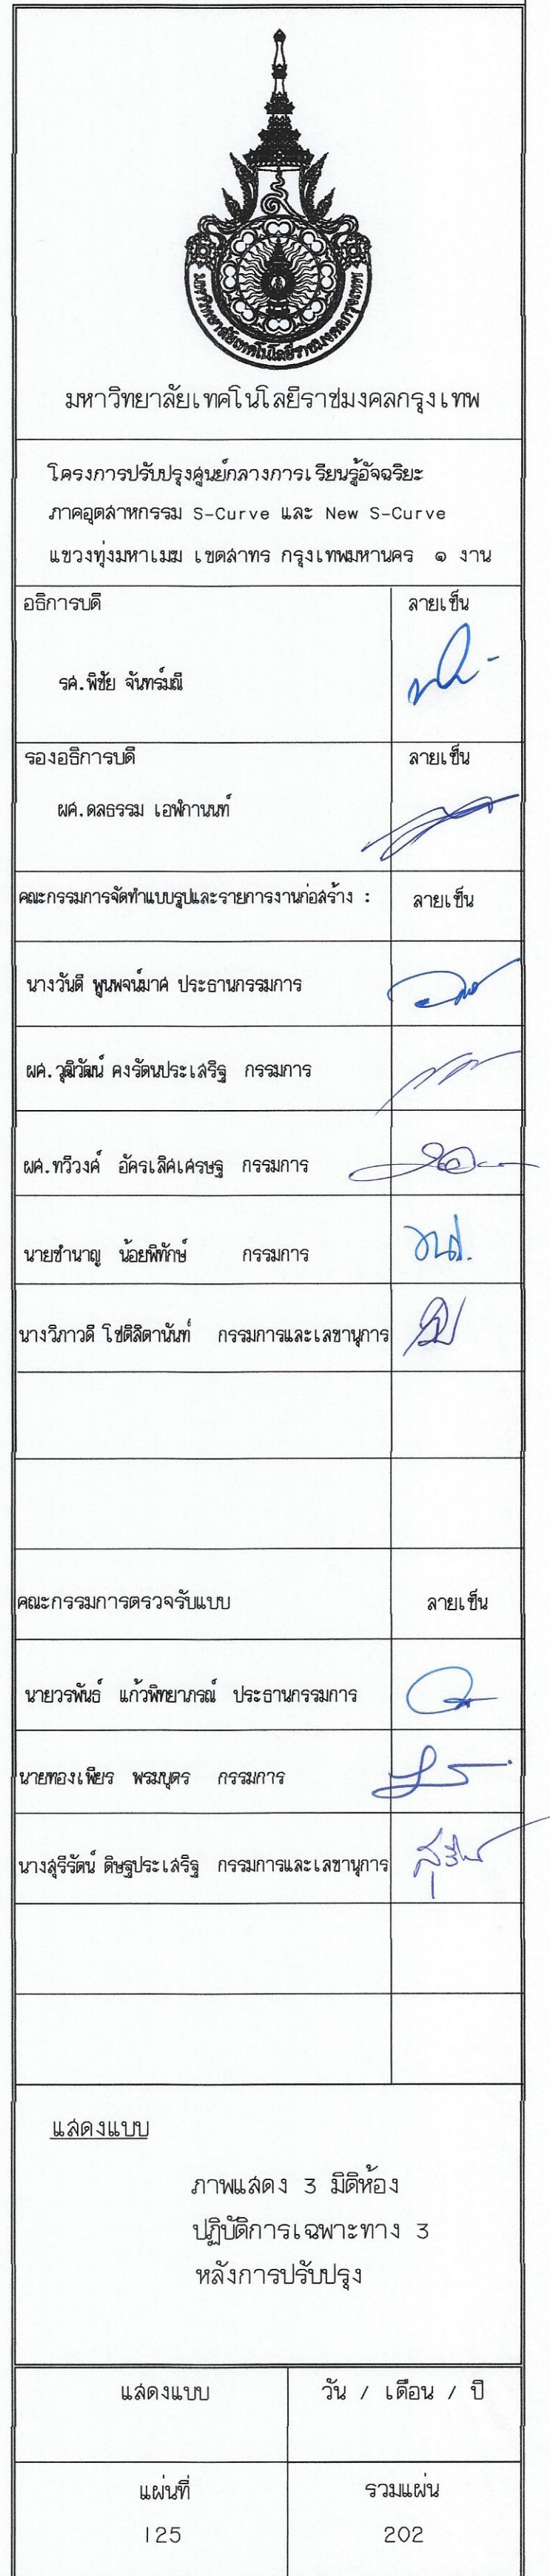 มหาวิทยาลัยเทคโนโลยีราชมงคลกรุงเทพ
มหาวิทยาลัยเทคโนโลยีราชมงคลกรุงเทพ
โครงการปรับปรุงศูนย์กลางการเรียนรู้อัจฉริยะ
ภาคอุตสาหกรรม S-Curve และ New S-Curve
แขวงทุ่งมหาเมฆ เขตสาทร กรุงเทพมหานคร ๑ งาน
อธิการบดี ลายเซ็น
รศ.พิชัย จันทร์มณี
รองอธิการบดี ลายเซ็น
ผศ.ดลธรรม เอฬกานนท์
คณะกรรมการจัดทำแบบรูปและรายการงานก่อสร้าง : ลายเซ็น
นางวันดี พูนพจน์มาศ ประธานกรรมการ
ผศ.วุฒิวัฒน์ คงรัตนประเสริฐ กรรมการ
ผศ.ทวีวงศ์ อัครเลิศเศรษฐ กรรมการ
นายชำนาญ น้อยพิทักษ์ กรรมการ
นางวิภาวดี โชติลิตานันท์ กรรมการและเลขานุการ
คณะกรรมการตรวจรับแบบ ลายเซ็น
นายวรพันธ์ แก้วพิทยาภรณ์ ประธานกรรมการ
นายทองเพียร พรมบุตร กรรมการ
นางสุรีรัตน์ ดิษฐประเสริฐ กรรมการและเลขานุการ
แสดงแบบ
ภาพแสดง 3 มิติห้อง
ปฏิบัติการเฉพาะทาง 3
หลังการปรับปรุง
แสดงแบบ วัน / เดือน / ปี
แผ่นที่ รวมแผ่น
125 202